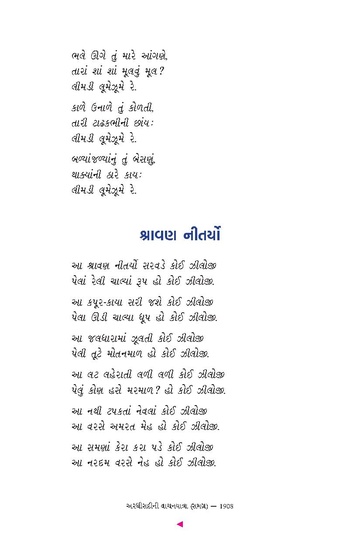 ભલે ઊગે તું મારે આંગણે,
તારાં શાં શાં મૂલવું મૂલ ?
લીમડી લૂમેઝૂમે રે.
કાળે ઉનાળે તું કોળતી,
તારી ટાઢકભીની છાંયઃ
લીમડી લૂમેઝૂમે રે.
બળ્યાંજળ્યાંનું તું બેસણું,
થાક્યાંની ઠારે કાયઃ
લીમડી લૂમેઝૂમે રે.
શ્રાવણ નીતર્યો
આ શ્રાવણ નીતર્યો સરવડે કોઈ ઝીલોજી
પેલાં રેલી ચાલ્યાં રૂપ હો કોઈ ઝીલોજી.
આ કપૂર-કાયા સરી જશે કોઈ ઝીલોજી
પેલા ઊડી ચાલ્યા ધૂપ હો કોઈ ઝીલોજી.
આ જલધારામાં ઝૂલતી કોઈ ઝીલોજી
પેલી તૂટે મોતનમાળ હો કોઈ ઝીલોજી.
આ લટ લહેરાતી લળી લળી કોઈ ઝીલોજી
પેલું કોણ હસે મરમાળ ? હો કોઈ ઝીલોજી.
આ નથી ટપકતાં નેવલાં કોઈ ઝીલોજી
આ વરસે અમરત મેહ હો કોઈ ઝીલોજી.
આ સમણાં કેરા કરા પડે કોઈ ઝીલોજી
આ નરદમ વરસે નેહ હો કોઈ ઝીલોજી.
અરધીસદીની વાચનયાત્રા (સમગ્ર) — 1908